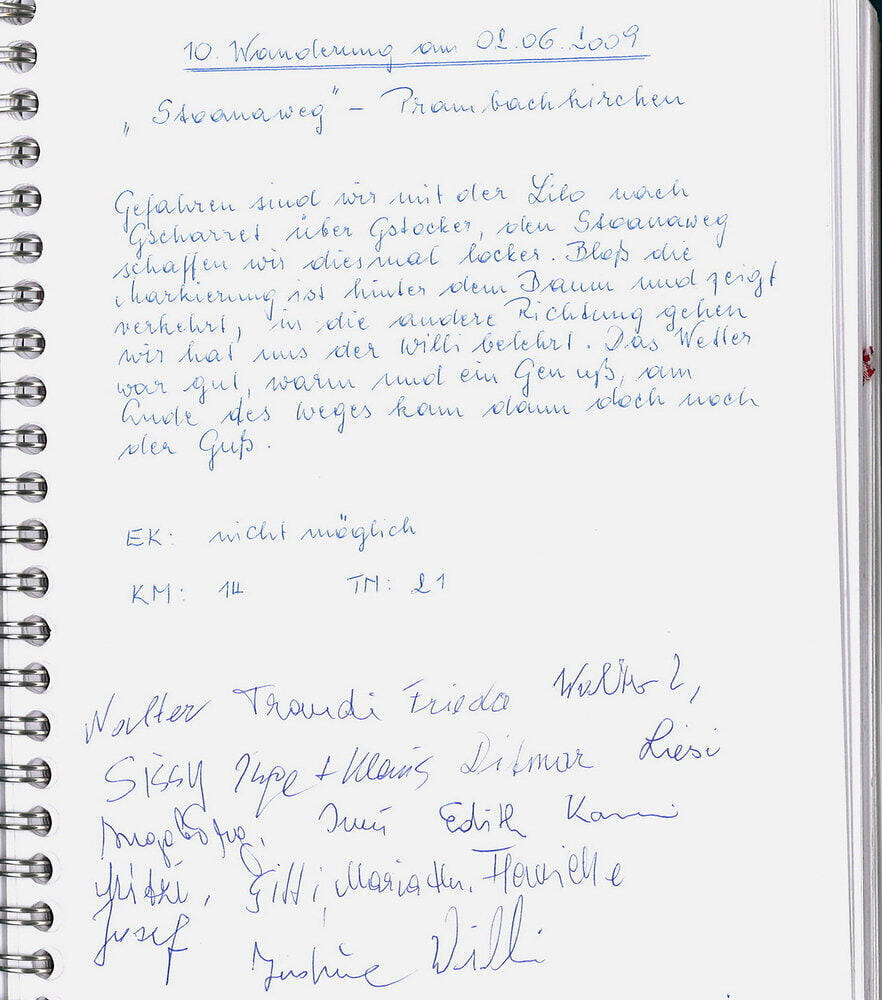 10. Wanderung am 02.06.2009
„Stoanaweg" - Prambachkirchen
Gefahren sind wir mit der Lilo nach
Gscharret über Gstocker, den Stoanaweg
schaffen wir diesmal locker. Bloß die
Markierung ist hinter dem Baum und zeigt
verkehrt, in die andere Richtung gehen
wir hat uns der Willi belehrt. Das Wetter
war gut, warm und ein Genuß, am
Ende des Weges kam dann doch noch
der Guß.
EK: nicht möglich
KM: 14 TN: 21
Walter Traudi Frieda Walter 2,
Sissy Inge + Klaus Ditmar Liesi
Edith
Mitzi, Gitti,
Josef
Justine Willi